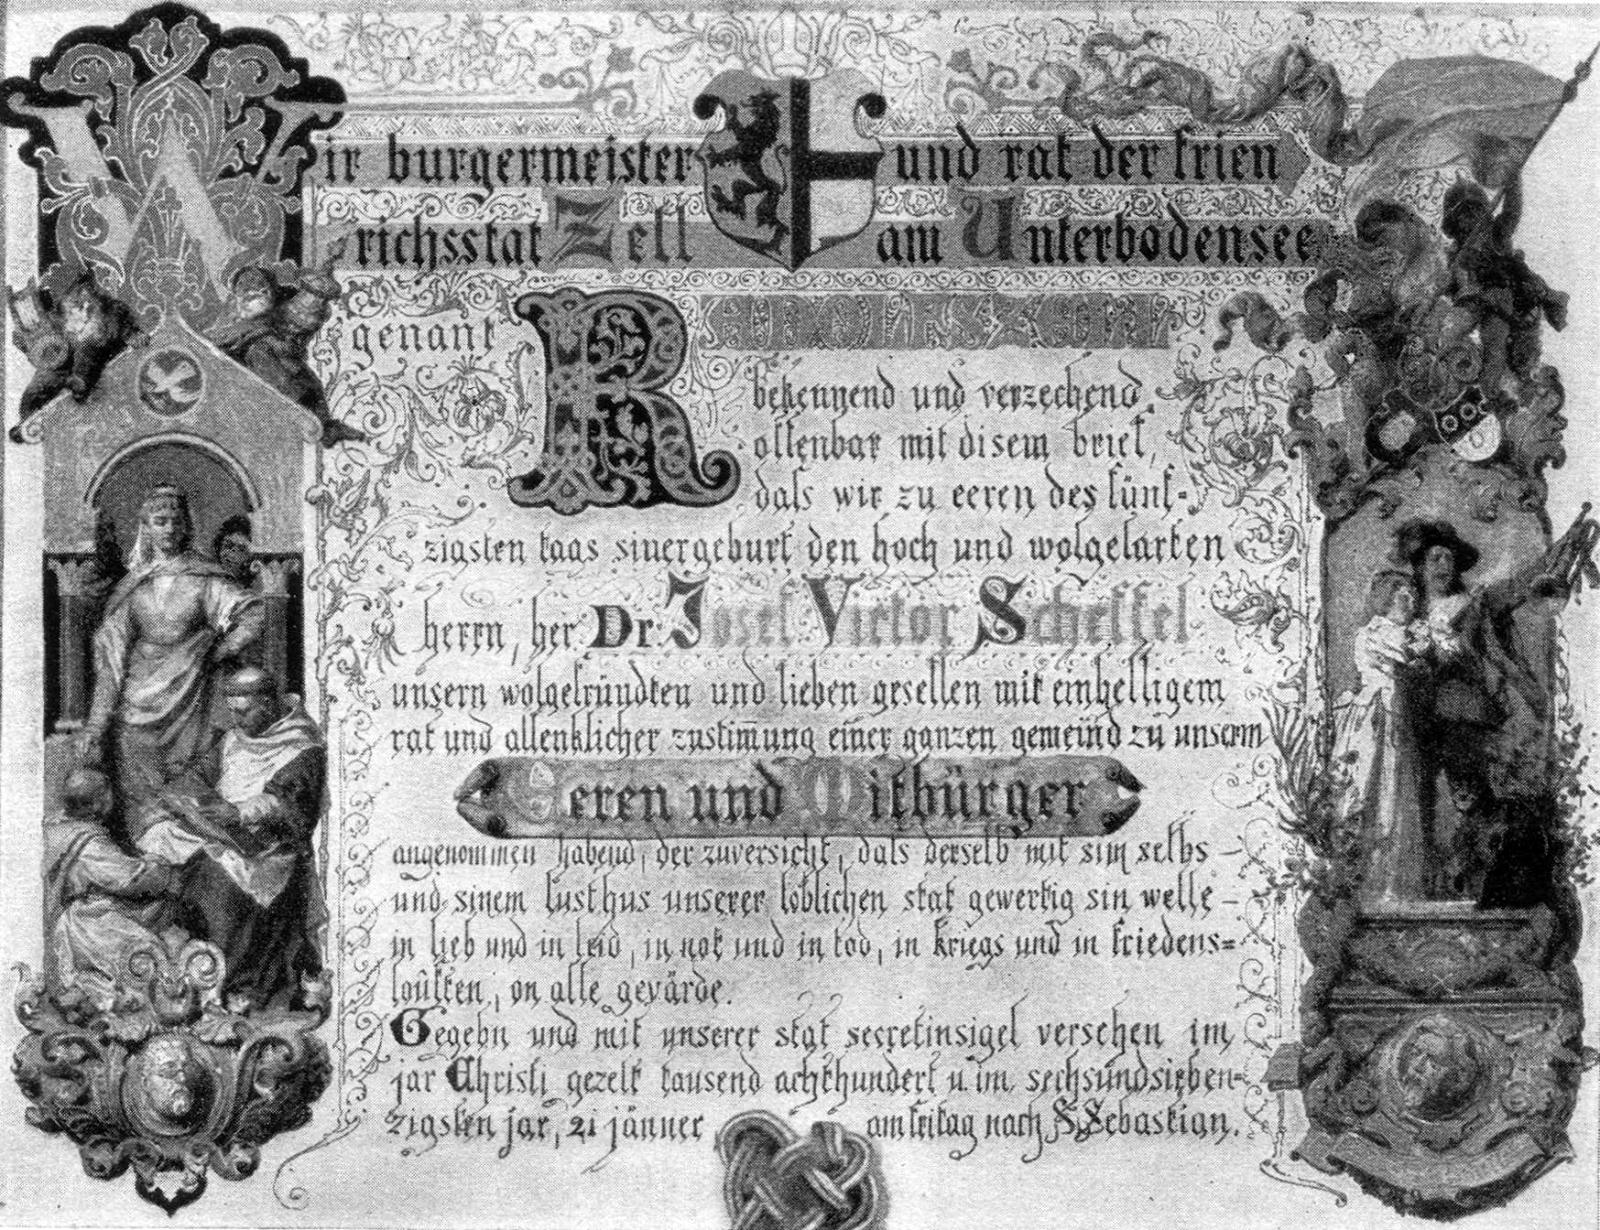 Wir burgermeister und rat der frien
richsstat Zell am Unterbodensee
genant
bekennend und verzechend
offenbar mit disem brief,
dass wir zu eeren des fünf-
zigsten taas siner geburt den hoch und wolgelarten
herrn, her Dr. Josef Victor Scheffel
unsern wolgefründten und lieben gesellen mit einhelligem
rat und allenklicher zustim̄ung einer ganzen gemeind zu unserm
Eeren und Mitbürger
angenommen habend, der zuversicht, dass derselb mit sim selbs –
und sinem lusthus unserer loblichen stat gewertig sin welle –
in lieb und in leid, in not und in tod, in kriegs und in friedens=
loüften, on alle gevärde.
Gegebn und mit unserer stat secretinsigel versehen im
jar Christi gezelt tausend achthundert u. im sechsundsieben-
zigsten jar, 21 jänner am fritag nach S. Sebastian.